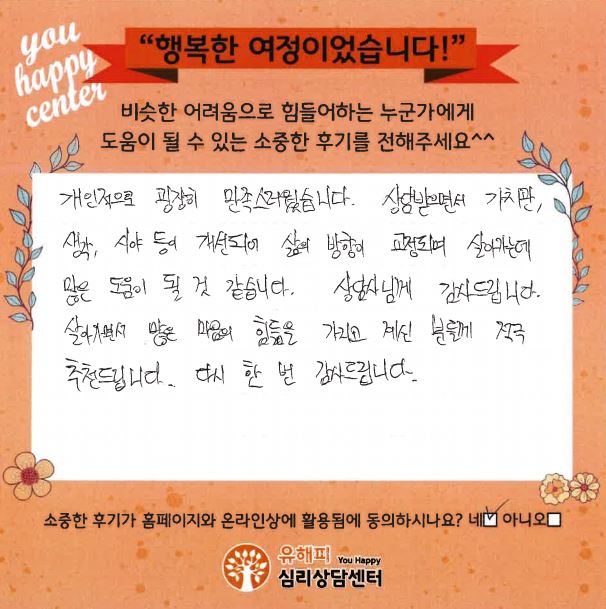 you
happy
center
“행복한 여정이었습니다!”
비슷한 어려움으로 힘들어하는 누군가에게
도움이 될 수 있는 소중한 후기를 전해주세요^^
개인적으로 굉장히 만족스러웠습니다. 상담받으면서 가치관,
생각, 시야 등이 개선되어 삶의 방향이 교정되며 살아가는데
많은 도움이 될 것 같습니다. 상담사님께 감사드립니다.
살아가면서 많은 마음의 힘듦을 가지고 계신 분들께 적극
추천드립니다. 다시 한 번 감사드립니다.
소중한 후기가 홈페이지와 온라인상에 활용됨에 동의하시나요? 네☑ 아니오☐
유해피 You Happy
심리상담센터